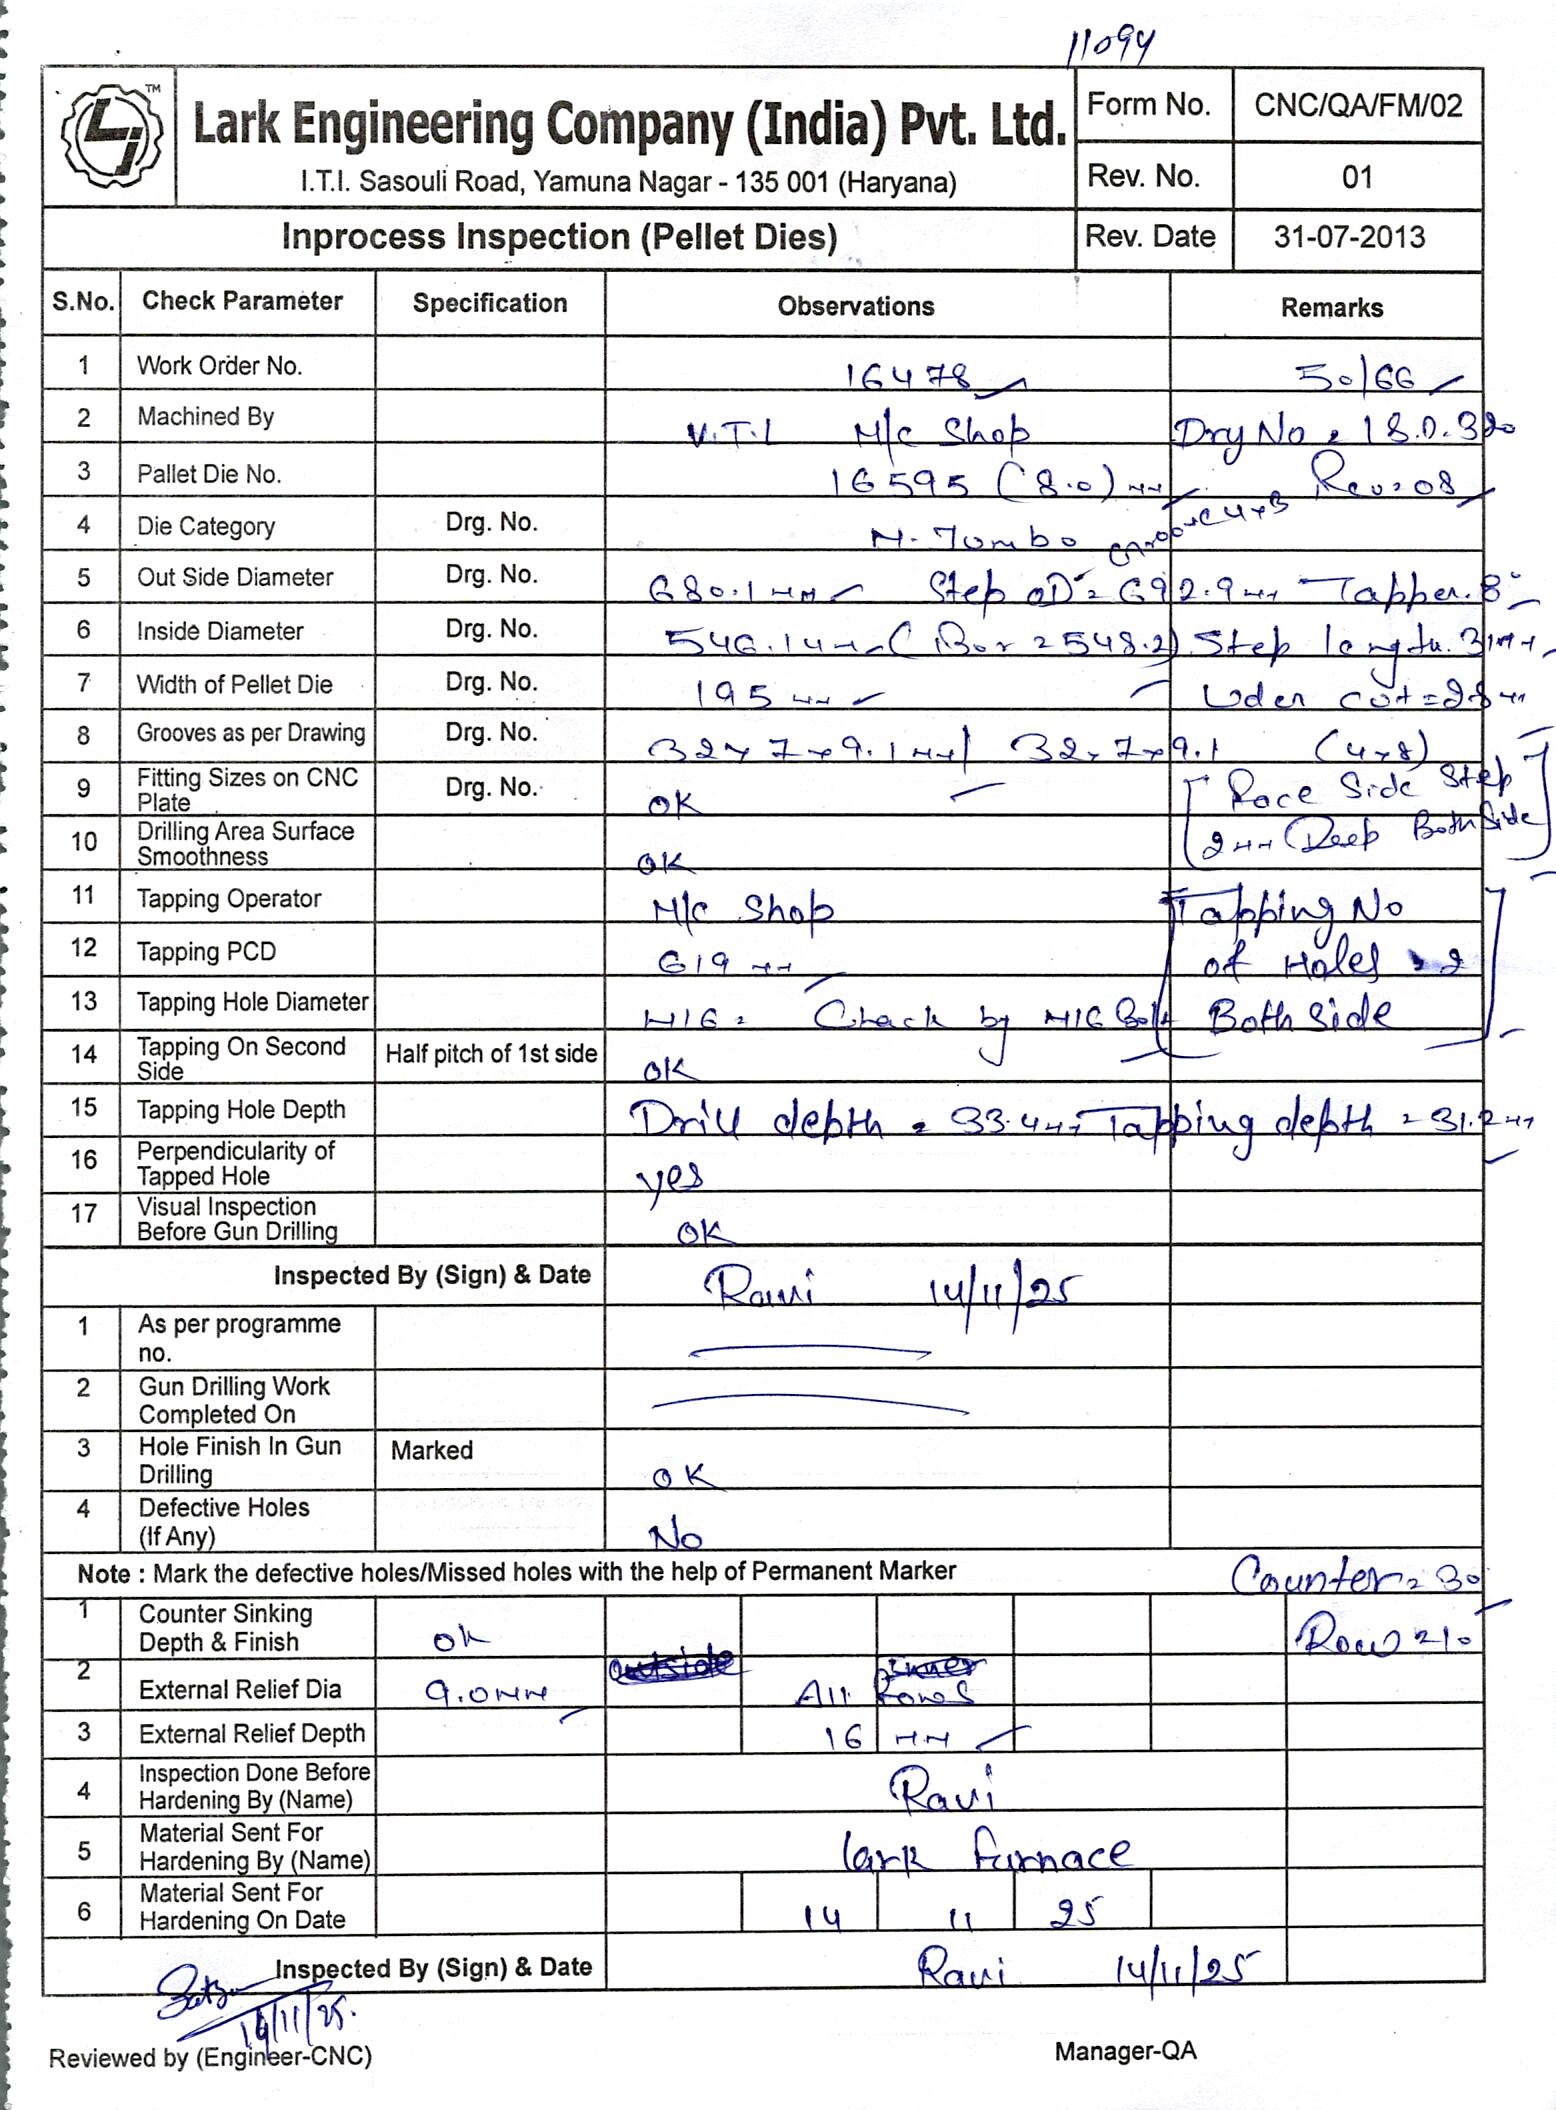 11094
TM
Lark Engineering Company (India) Pvt. Ltd.
I.T.I. Sasouli Road, Yamuna Nagar - 135 001 (Haryana)
Form No. CNC/QA/FM/02
Rev. No. 01
Inprocess Inspection (Pellet Dies) Rev. Date 31-07-2013
S.No. Check Parameter Specification Observations Remarks
1 Work Order No. 16478 50/66
2 Machined By V.T.L M/c Shop Drg No = 18.0.320
3 Pallet Die No. 16595 (8.0) mm Rev=08
4 Die Category Drg. No. M. Jumbo
5 Out Side Diameter Drg. No. 680.1 mm Step OD = 692.9 mm Tapper.8°
6 Inside Diameter Drg. No. 546.14 mm (Bor = 548.2) Step length. 31mm
7 Width of Pellet Die Drg. No. 195 mm Uder cut = 28 mm
8 Grooves as per Drawing Drg. No. 32x7x9.1 mm/ 32x7x9.1 (4x8)
9 Fitting Sizes on CNC Plate Drg. No. OK [Race Side Step
10 Drilling Area Surface Smoothness OK 2mm Deep Both Side]
11 Tapping Operator M/c Shop [Tapping No
12 Tapping PCD 619 mm of Holes = 2
13 Tapping Hole Diameter M16 = Chack by M16 Bolt Both Side]
14 Tapping On Second Side Half pitch of 1st side OK
15 Tapping Hole Depth Drill depth = 33.4mm Tapping depth = 31.2mm
16 Perpendicularity of Tapped Hole yes
17 Visual Inspection Before Gun Drilling OK
Inspected By (Sign) & Date Ravi 14/11/25
1 As per programme no.
2 Gun Drilling Work Completed On
3 Hole Finish In Gun Drilling Marked OK
4 Defective Holes (If Any) No
Note : Mark the defective holes/Missed holes with the help of Permanent Marker Counter = 30
1 Counter Sinking Depth & Finish ok Row = 10
2 External Relief Dia 9.0mm All Rows
3 External Relief Depth 16 mm
4 Inspection Done Before Hardening By (Name) Ravi
5 Material Sent For Hardening By (Name) lark furnace
6 Material Sent For Hardening On Date 14 11 25
Inspected By (Sign) & Date Ravi 14/11/25
14/11/25.
Reviewed by (Engineer-CNC) Manager-QA